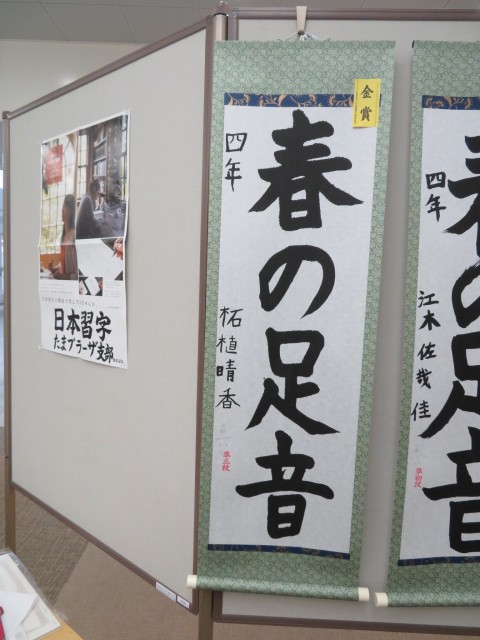 日本習字
たまプラーザ支部
金賞
春の足音
四年
柘植晴香
準五段
春の足音
四年
江木佐哉佳
準初段